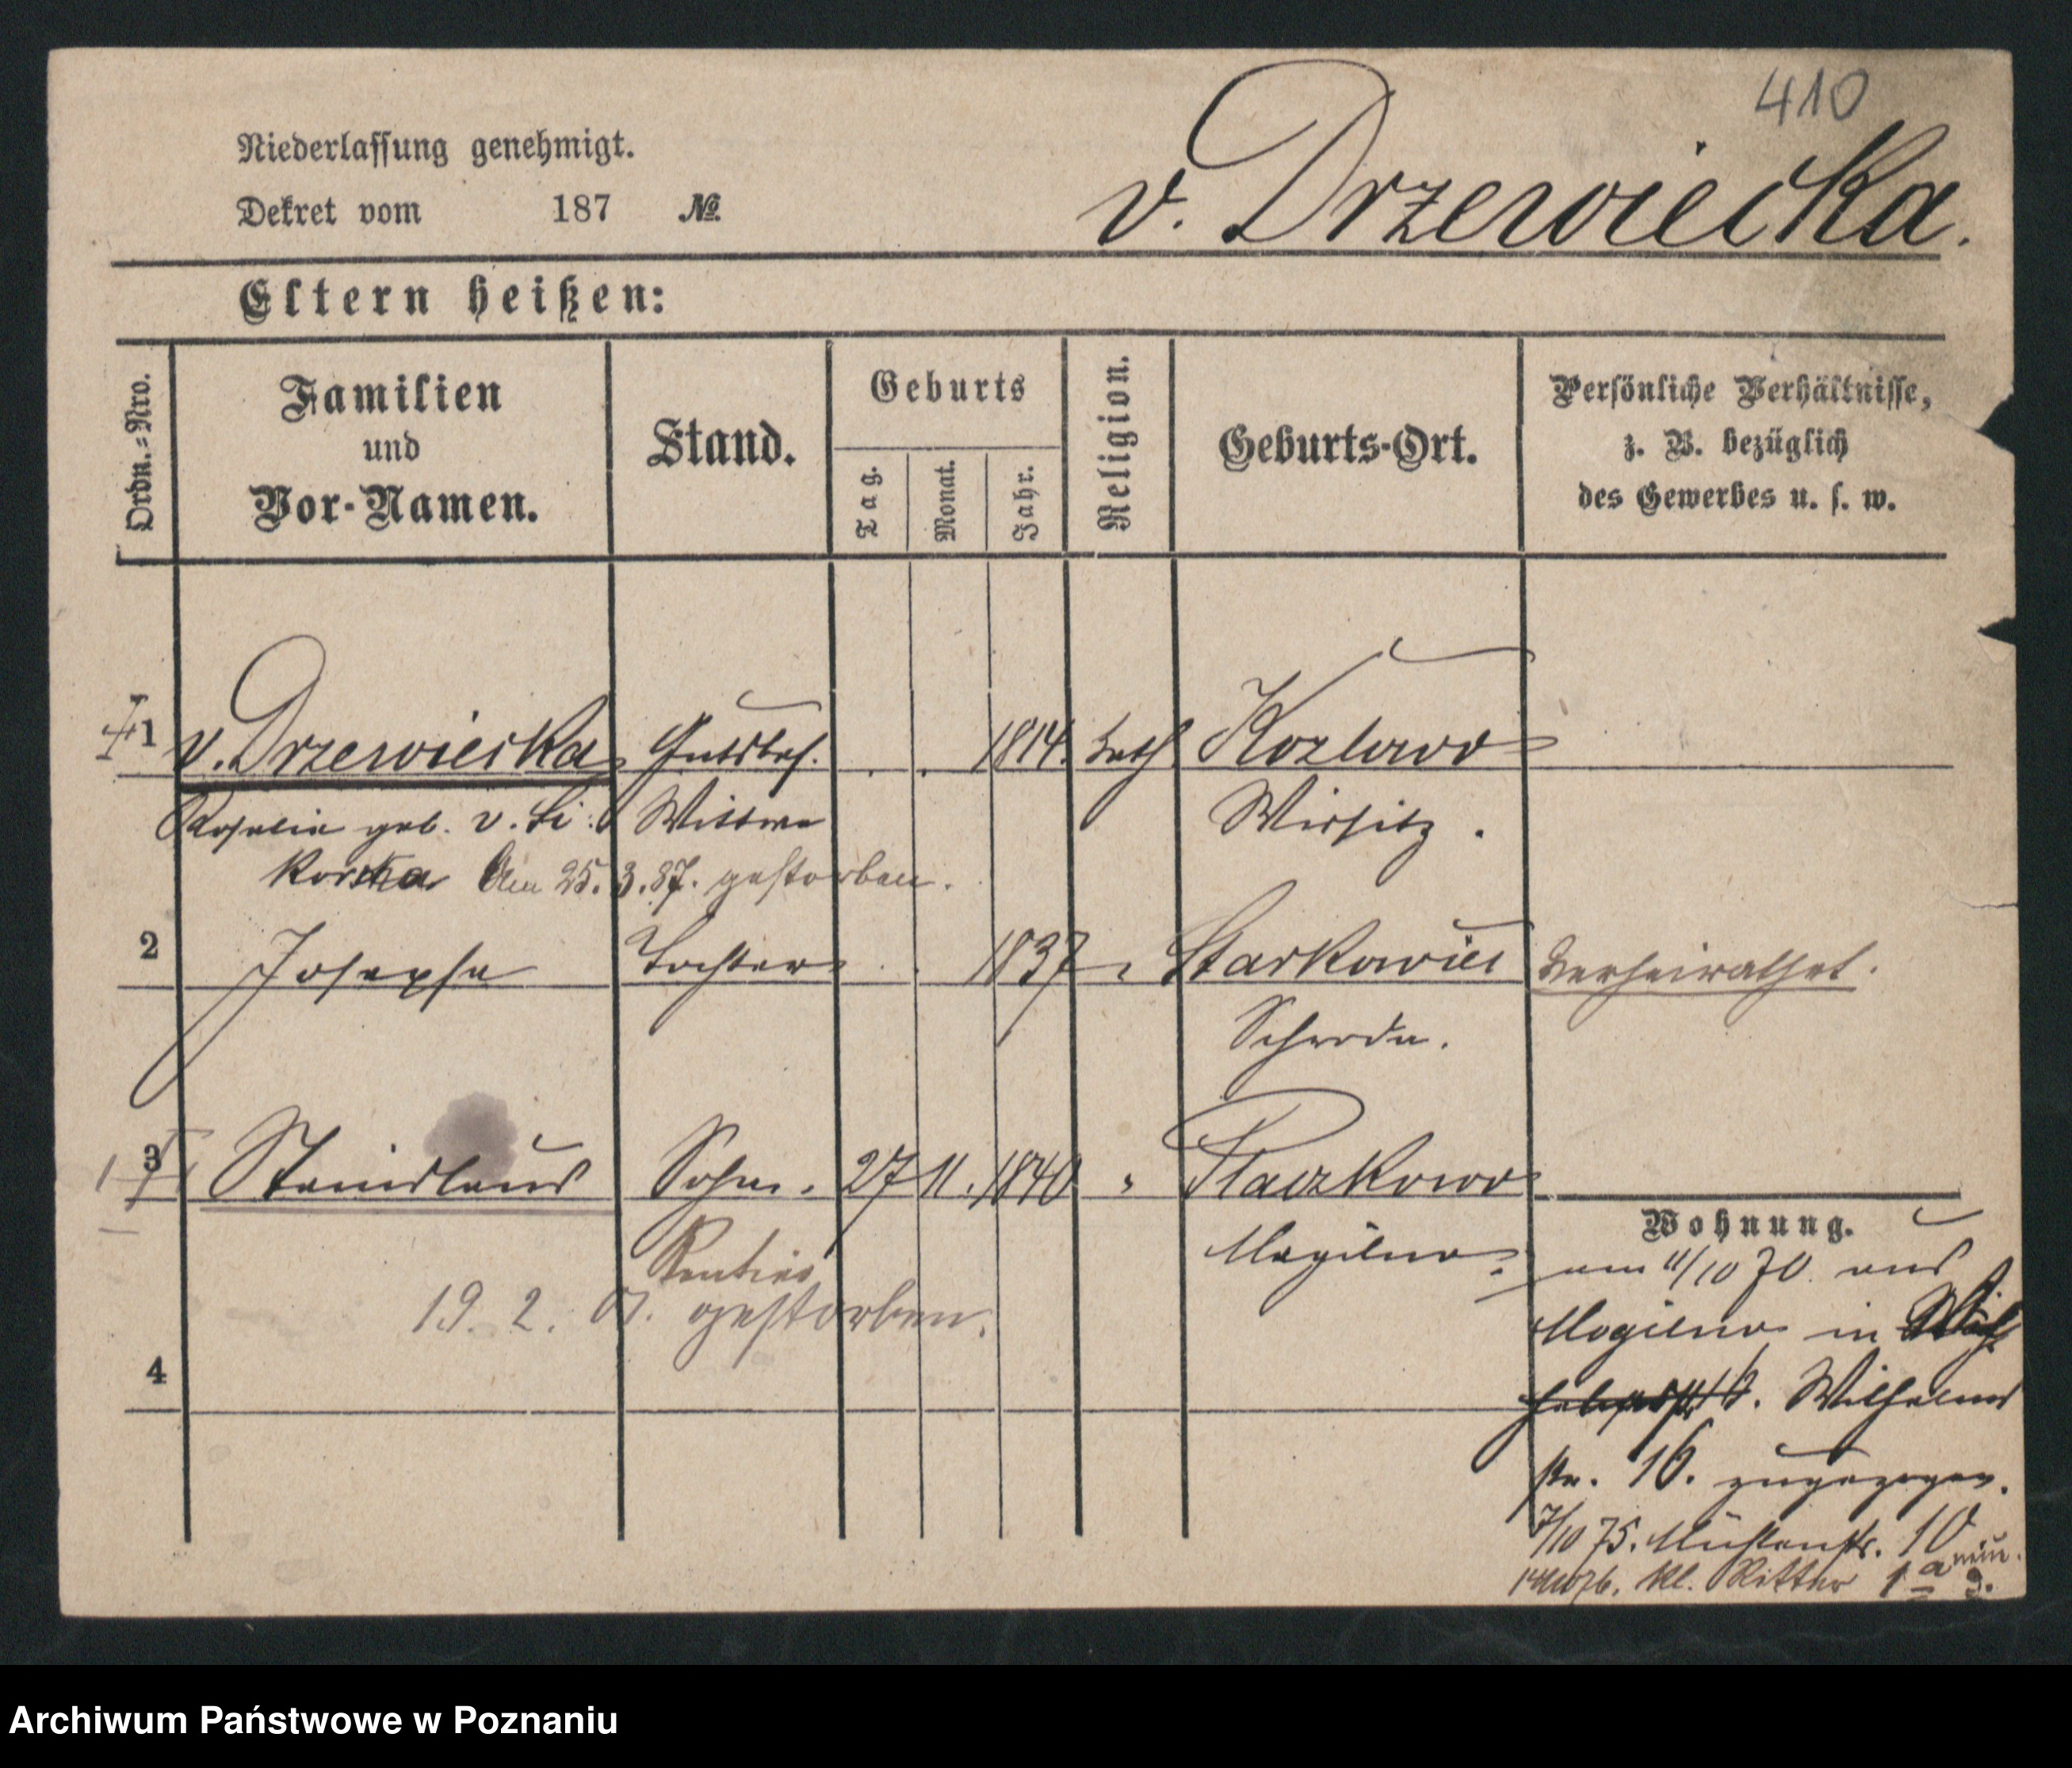 410
Niederlassung genehmigt.
Dekret vom 187 №
v. Drzewiecka.
Eltern heißen:
Ordn.=Nro.
Familien und Vor-Namen.
Stand.
Geburts
Tag.
Monat.
Jahr.
Religion.
Geburts-Ort.
Persönliche Verhältnisse, z. B. bezüglich des Gewerbes u. s. w.
1 v. Drzewiecka Gutsbes. . . 1814. kath Kozlowo
Rosalie geb. v. Li: Wittwe Wirsitz.
korska Am 25.3.87. gestorben.
2 Josepha Tochter . . 1837 " Starkowiec verheirathet.
Schroda.
3 Stanislaus Sohn. 27 11. 1840 " Placzkowo
Wohnung.
Rentier Mogilno. am 11/10 70. aus
19. 2. 01. gestorben. Mogilno in
4 Wilhelms
str. 16. zugezogen.
7/10 75. Mühlenstr. 10
kl. Ritter 1 a